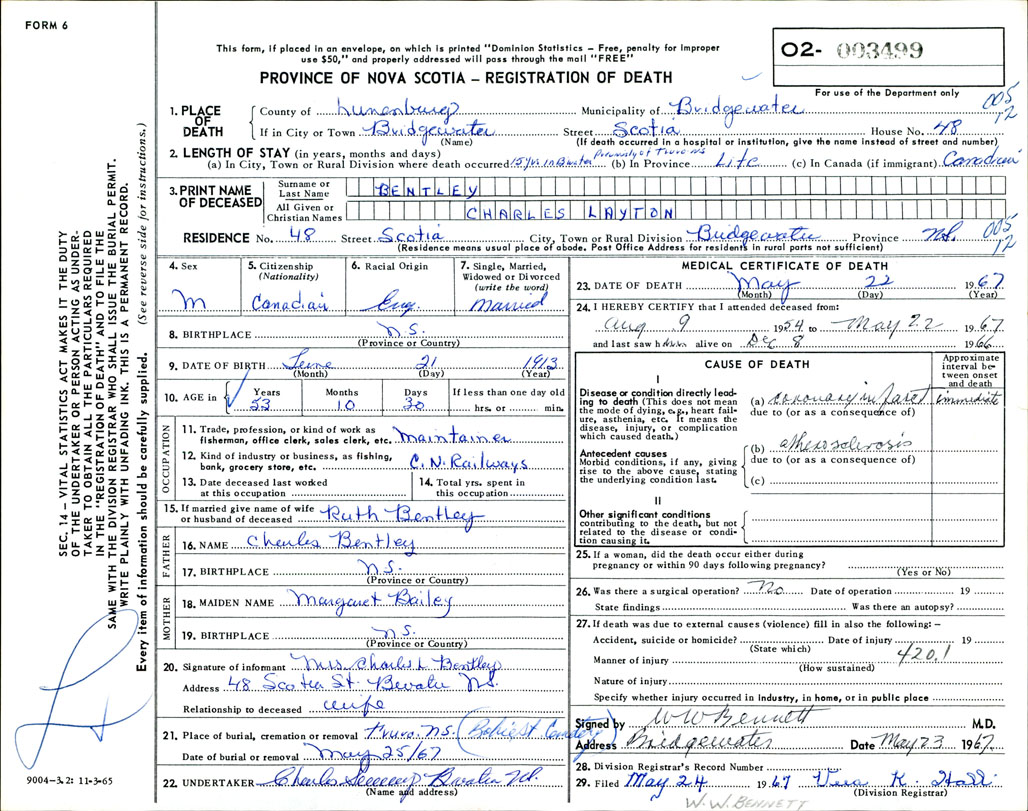 FORM 6
This form, if placed in an envelope, on which is printed "Dominion Statistics – Free, penalty for improper
use $50," and properly addressed will pass through the mail "FREE"
PROVINCE OF NOVA SCOTIA – REGISTRATION OF DEATH
02- 003499
For use of the Department only
005
12
1. PLACE OF DEATH
County of Lunenburg Municipality of Bridgewater
If in City or Town Bridgewater Street Scotia House No. 48
(Name) (If death occurred in a hospital or institution, give the name instead of street and number)
2. LENGTH OF STAY (in years, months and days)
(a) In City, Town or Rural Division where death occurred 15 yrs in B'water Previously of Truro NS (b) In Province Life (c) In Canada (if immigrant) Canadian
3. PRINT NAME OF DECEASED
Surname or Last Name BENTLEY
All Given or Christian Names CHARLES LAYTON
RESIDENCE No. 48 Street Scotia City, Town or Rural Division Bridgewater Province N.S. 005
12
(Residence means usual place of abode. Post Office Address for residents in rural parts not sufficient)
4. Sex
M
5. Citizenship
(Nationality)
Canadian
6. Racial Origin
Eng.
7. Single, Married,
Widowed or Divorced
(write the word)
Married
8. BIRTHPLACE N.S.
(Province or Country)
9. DATE OF BIRTH June 21 1913
(Month) (Day) (Year)
10. AGE in Years Months Days If less than one day old
53 10 30 hrs. or min.
OCCUPATION
11. Trade, profession, or kind of work as
fisherman, office clerk, sales clerk, etc. Maintainer
12. Kind of industry or business, as fishing,
bank, grocery store, etc. C.N. Railways
13. Date deceased last worked
at this occupation
14. Total yrs. spent in
this occupation
15. If married give name of wife
or husband of deceased Ruth Bentley
FATHER
16. NAME Charles Bentley
17. BIRTHPLACE N.S.
(Province or Country)
MOTHER
18. MAIDEN NAME Margaret Bailey
19. BIRTHPLACE N.S.
(Province or Country)
20. Signature of informant Mrs. Charles L. Bentley
Address 48 Scotia St. B'water N.S.
Relationship to deceased wife
21. Place of burial, cremation or removal Truro. N.S. (Baptist Cemetery)
Date of burial or removal May 25/67
22. UNDERTAKER Charles
(Name and address)
MEDICAL CERTIFICATE OF DEATH
23. DATE OF DEATH May 22 1967
(Month) (Day) (Year)
24. I HEREBY CERTIFY that I attended deceased from:
Aug 9 1954 to May 22 1967
and last saw him alive on Dec 8 1966
CAUSE OF DEATH
Approximate
interval be-
tween onset
and death
I
Disease or condition directly lead-
ing to death (This does not mean
the mode of dying, e.g., heart fail-
ure, asthenia, etc. It means the
disease, injury, or complication
which caused death.)
(a) coronary infarct immediate
due to (or as a consequence of)
Antecedent causes
Morbid conditions, if any, giving
rise to the above cause, stating
the underlying condition last.
(b) atherosclerosis
due to (or as a consequence of)
(c)
II
Other significant conditions
contributing to the death, but not
related to the disease or condi-
tion causing it.
25. If a woman, did the death occur either during
pregnancy or within 90 days following pregnancy?
(Yes or No)
26. Was there a surgical operation? No Date of operation 19
State findings Was there an autopsy?
27. If death was due to external causes (violence) fill in also the following: –
Accident, suicide or homicide? Date of injury 19
(State which)
420.1
Manner of injury
(How sustained)
Nature of injury
Specify whether injury occurred in industry, in home, or in public place
Signed by W W Bennett M.D.
Address Bridgewater Date May 23 1967.
28. Division Registrar's Record Number
29. Filed May 24 1967 Vera K.
(Division Registrar)
W.W. BENNETT
SEC. 14 – VITAL STATISTICS ACT MAKES IT THE DUTY
OF THE UNDERTAKER OR PERSON ACTING AS UNDER-
TAKER TO OBTAIN ALL THE PARTICULARS REQUIRED
IN THE "REGISTRATION OF DEATH" AND TO FILE THE
SAME WITH THE DIVISION REGISTRAR WHO SHALL ISSUE THE BURIAL PERMIT.
WRITE PLAINLY WITH UNFADING INK. THIS IS A PERMANENT RECORD.
Every item of information should be carefully supplied. (See reverse side for instructions.)
9004-3.2: 11-3-65